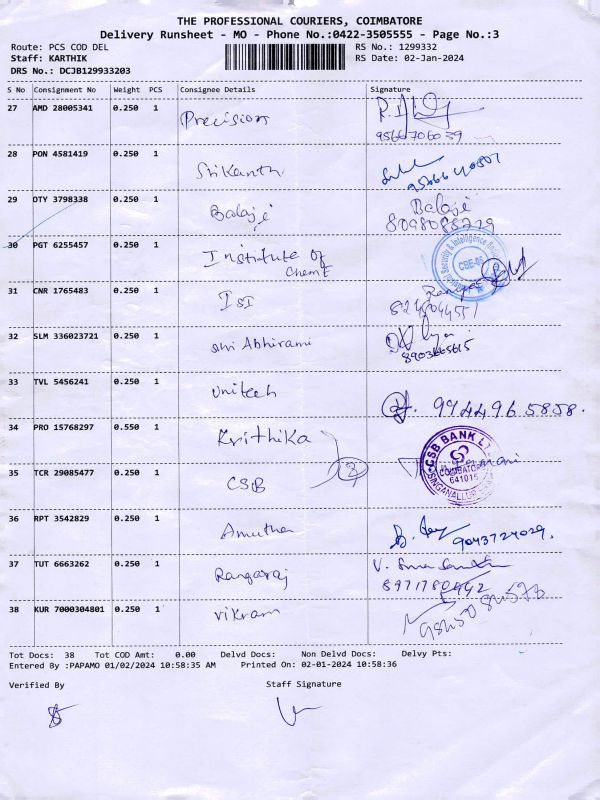 THE PROFESSIONAL COURIERS, COIMBATORE
Delivery Runsheet - MO - Phone No.:0422-3505555 - Page No.:3
Route: PCS COD DEL RS No.: 1299332
Staff: KARTHIK RS Date: 02-Jan-2024
DRS No.: DCJB129933203
S No Consignment No Weight PCS Consignee Details Signature
27 AMD 28005341 0.250 1 Precision
9566706039
28 PON 4581419 0.250 1 Srikanth
29 DTY 3798338 0.250 1 Balaji Balaji
30 PGT 6255457 0.250 1 Institute of
Cheme
CBE-05
31 CNR 1765483 0.250 1 ISI
32 SLM 336023721 0.250 1 Shri Abhirami
8903665615
33 TVL 5456241 0.250 1 Unitech
9944965858.
34 PRO 15768297 0.550 1 Krithika
CSB BANK
COIMBATORE
641015
SINGANALLUR
35 TCR 29085477 0.250 1 CSB
2
36 RPT 3542829 0.250 1 Amutha
9043724029.
37 TUT 6663262 0.250 1 Rangaraj
38 KUR 7000304801 0.250 1 Vikram
Tot Docs: 38 Tot COD Amt: 0.00 Delvd Docs: Non Delvd Docs: Delvy Pts:
Entered By :PAPAMO 01/02/2024 10:58:35 AM Printed On: 02-01-2024 10:58:36
Verified By Staff Signature